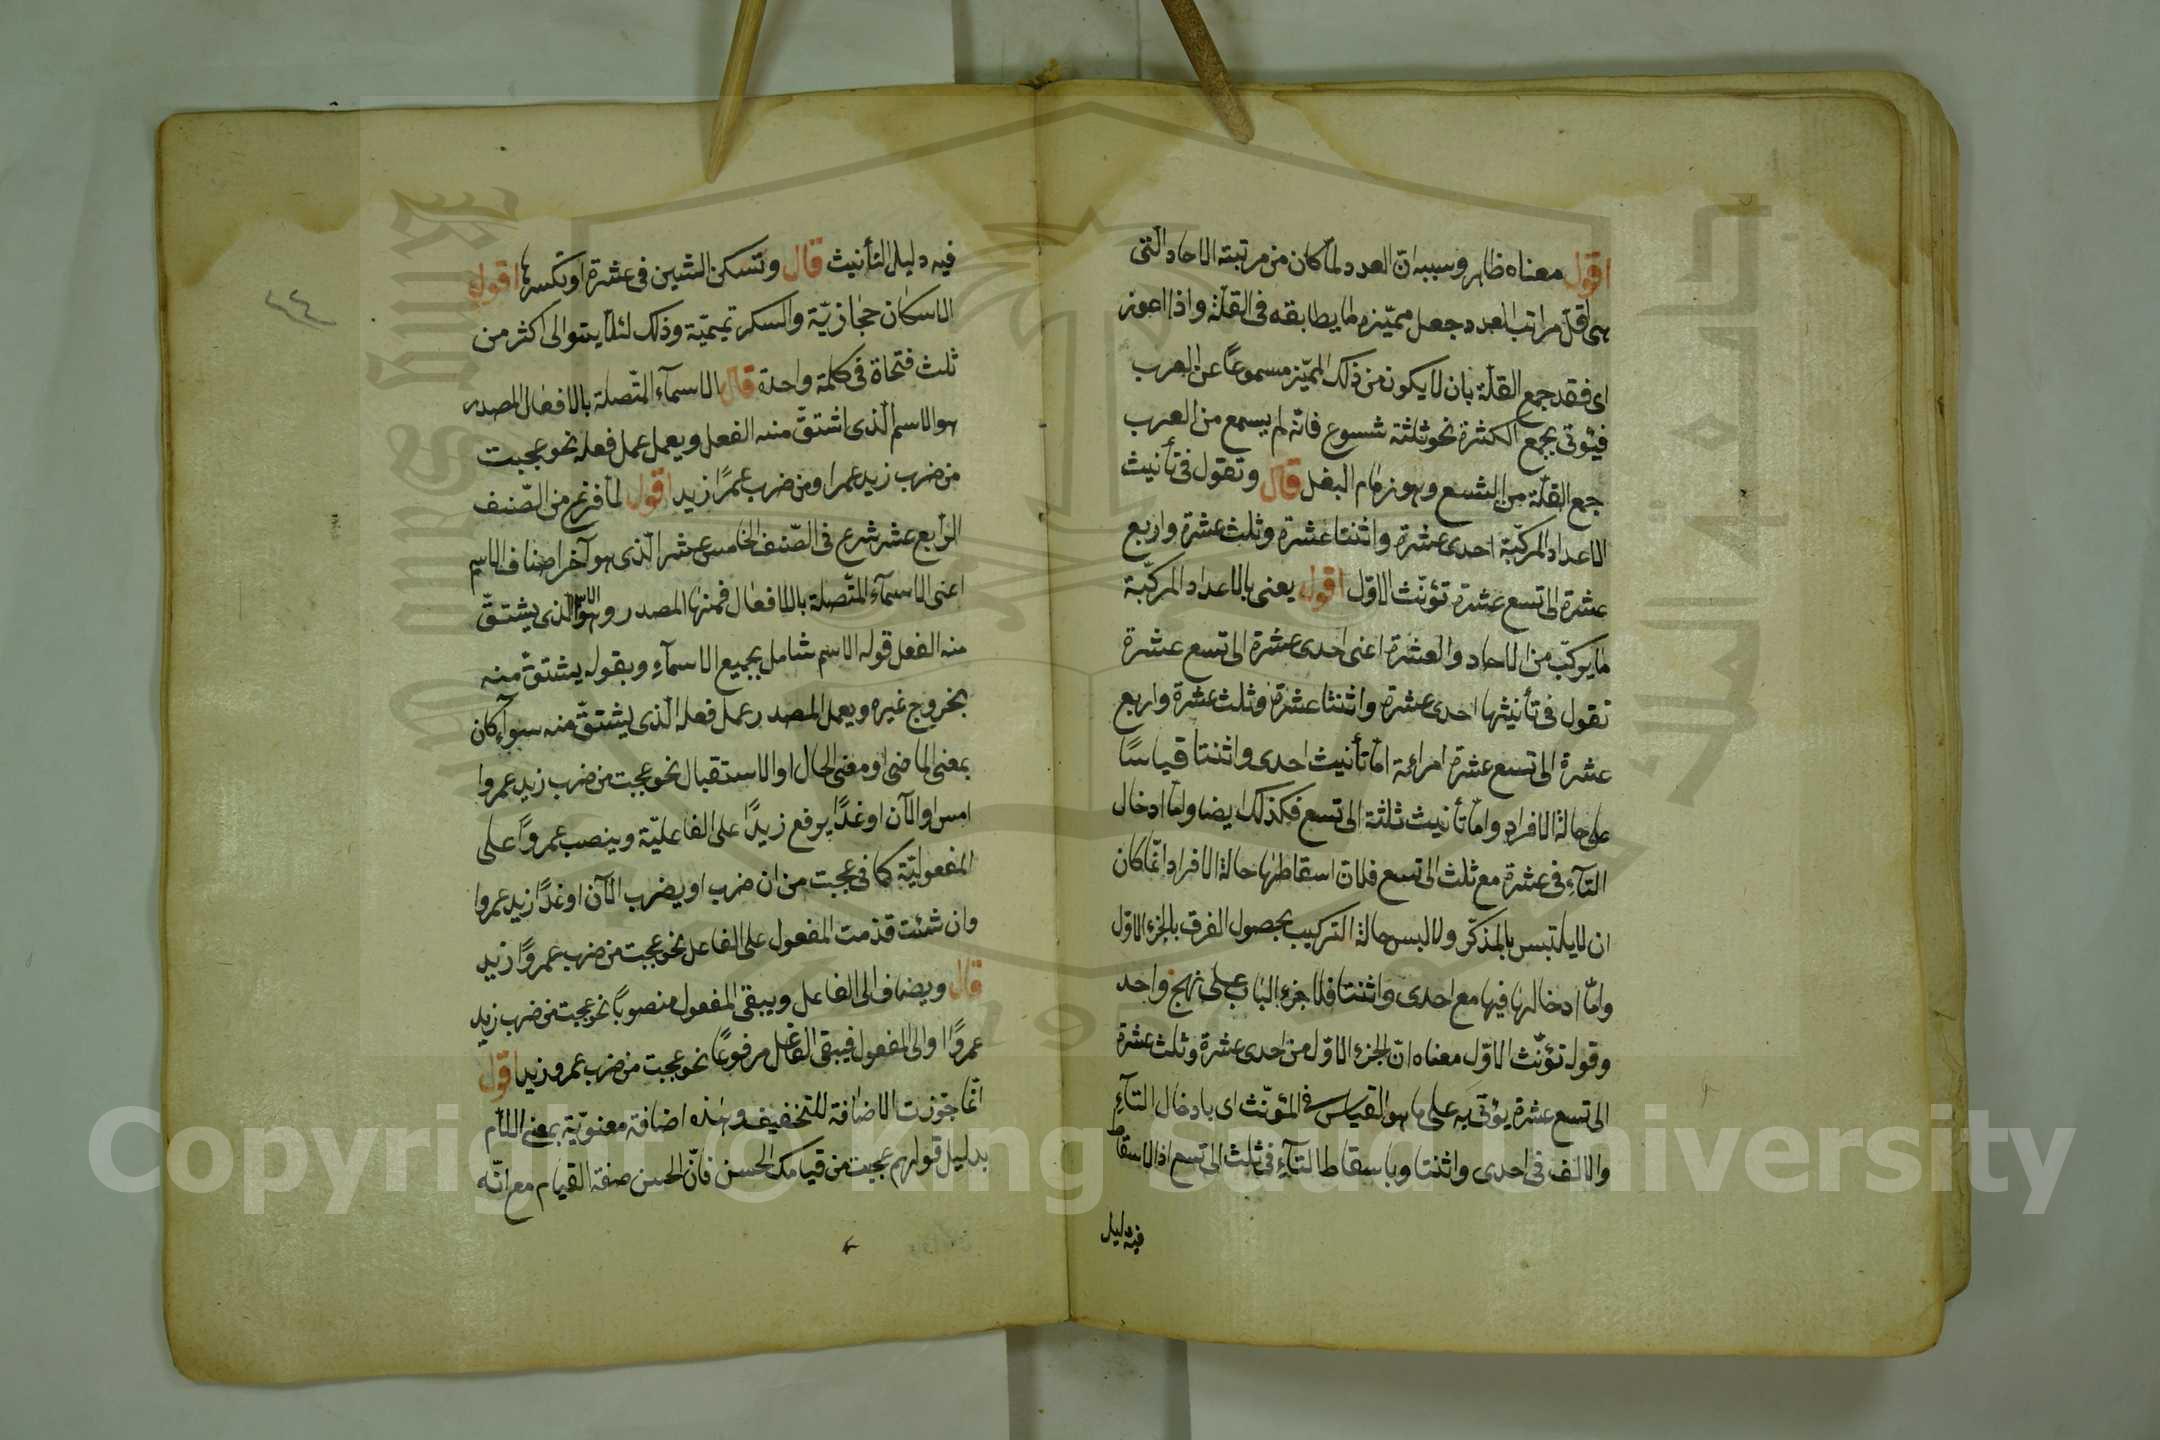 اقول معناه ظاهر وسببه انّ العدد لمّا كان من مرتبته الاحاد الّتى
هى اقلّ مراتب العدد جعل مميّزه لما يطابقه فى القلّة واذا اعوز
اى فقد جمع القلّة بان لا يكون من ذلك المميّز مسموعًا عن العرب
فيؤتى بجمع الكثرة نحو ثلثة شسوع فانّه لم يسمع من العرب
جمع القلّة من الشسع وهو زمام البغل قال وتقول فى تأنيث
الاعداد المركّبة احدى عشرة واثنتا عشرة وثلث عشرة واربع
عشرة الى تسع عشرة تؤنّث الاوّل اقول يعنى بالاعداد المركّبة
ما يركّب من الاحاد والعشرة اعنى احدى عشرة الى تسع عشرة
تقول فى تأنيثها احدى عشرة واثنتا عشرة وثلث عشرة واربع
عشرة الى تسع عشرة امرائة امّا تأنيث احدى واثنتا قياسًا
على حالة الافراد وامّا تأنيث ثلثة الى تسع فكذلك ايضا وامّا ادخال
التآء فى عشرة مع ثلث الى تسع فلانّ اسقاطها حالة الافراد انّما كان
ان لا يلتبس بالمذكّر ولا لبس حالة التركيب بحصول الفرق بالجزء الاوّل
وامّا ادخالها فيها مع احدى واثنتا فلاجزء الباب على نهج واحد
وقوله تؤنّث الاوّل معناه انّ الجزء الاوّل من احدى عشرة وثلث عشرة
الى تسع عشرة يؤتى به على ما هو القياس فى المؤنّث اى بادخال التآء
والالف فى احدى واثنتا وباسقاط التآء فى ثلث الى تسع اذ الاسقاط
فيه دليل
فيه دليل التأنيث قال وتسكن الشين فى عشرة او تكسرها اقول
الاسكان حجازيّة والكسر تميميّة وذلك لئلّا يتوالى اكثر من
ثلث فتحاة فى كلمة واحدة قال الاسمآء المتّصلة بالافعال المصدر
هو الاسم الّذى اشتقّ منه الفعل ويعمل عمل فعله نحو عجبت
من ضرب زيد عمرا ومن ضرب عمرًا زيد اقول لمّا فرغ من الصّنف
الرّابع عشر شرع فى الصّنف الخامس عشر الّذى هو آخر اصناف الاسم
اعنى الاسمآء المتّصلة بالافعال فمنها المصدر وهو الاسم الّذى يشتقّ
منه الفعل قوله الاسم شامل بجميع الاسمآء وبقوله يشتقّ منه
بخروج غيره ويعمل المصدر عمل فعله الّذى يشتقّ منه سوآء كان
بمعنى الماضى او معنى الحال او الاستقبال نحو عجبت من ضرب زيد عمروا
امس او الآن او غدًا يرفع زيدًا على الفاعليّة وينصب عمروًا على
المفعوليّة كما فى عجبت من ان ضرب او يضرب الآن او غدًا زيد عمروا
وان شئت قدّمت المفعول على الفاعل نحو عجبت من ضرب عمروًا زيد
قال ويضاف الى الفاعل ويبقى المفعول منصوبًا نحو عجبت من ضرب زيد
عمروًا والى المفعول فيبقى الفاعل مرفوعًا نحو عجبت من ضرب عمرو زيد اقول
انّما جوّزت الاضافة للتخفيف وهذه اضافة معنويّة بمعنى اللام
بدليل قولهم عجبت من قيامك الحسن فانّ الحسن صفة القيام مع انّه
٤٤
Copyright © King Saud University
King Saud University
1957